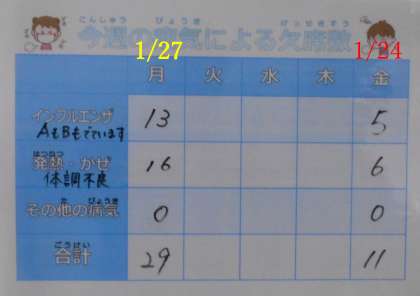 こんしゅう びょうき けっせきすう
今週の病気による欠席数
1/27 1/24
月 火 水 木 金
インフルエンザ 13 5
AもBもでています
はつねつ
発熱・かぜ 16 6
体調不良
た びょうき
その他の病気 0 0
ごうけい
合計 29 11